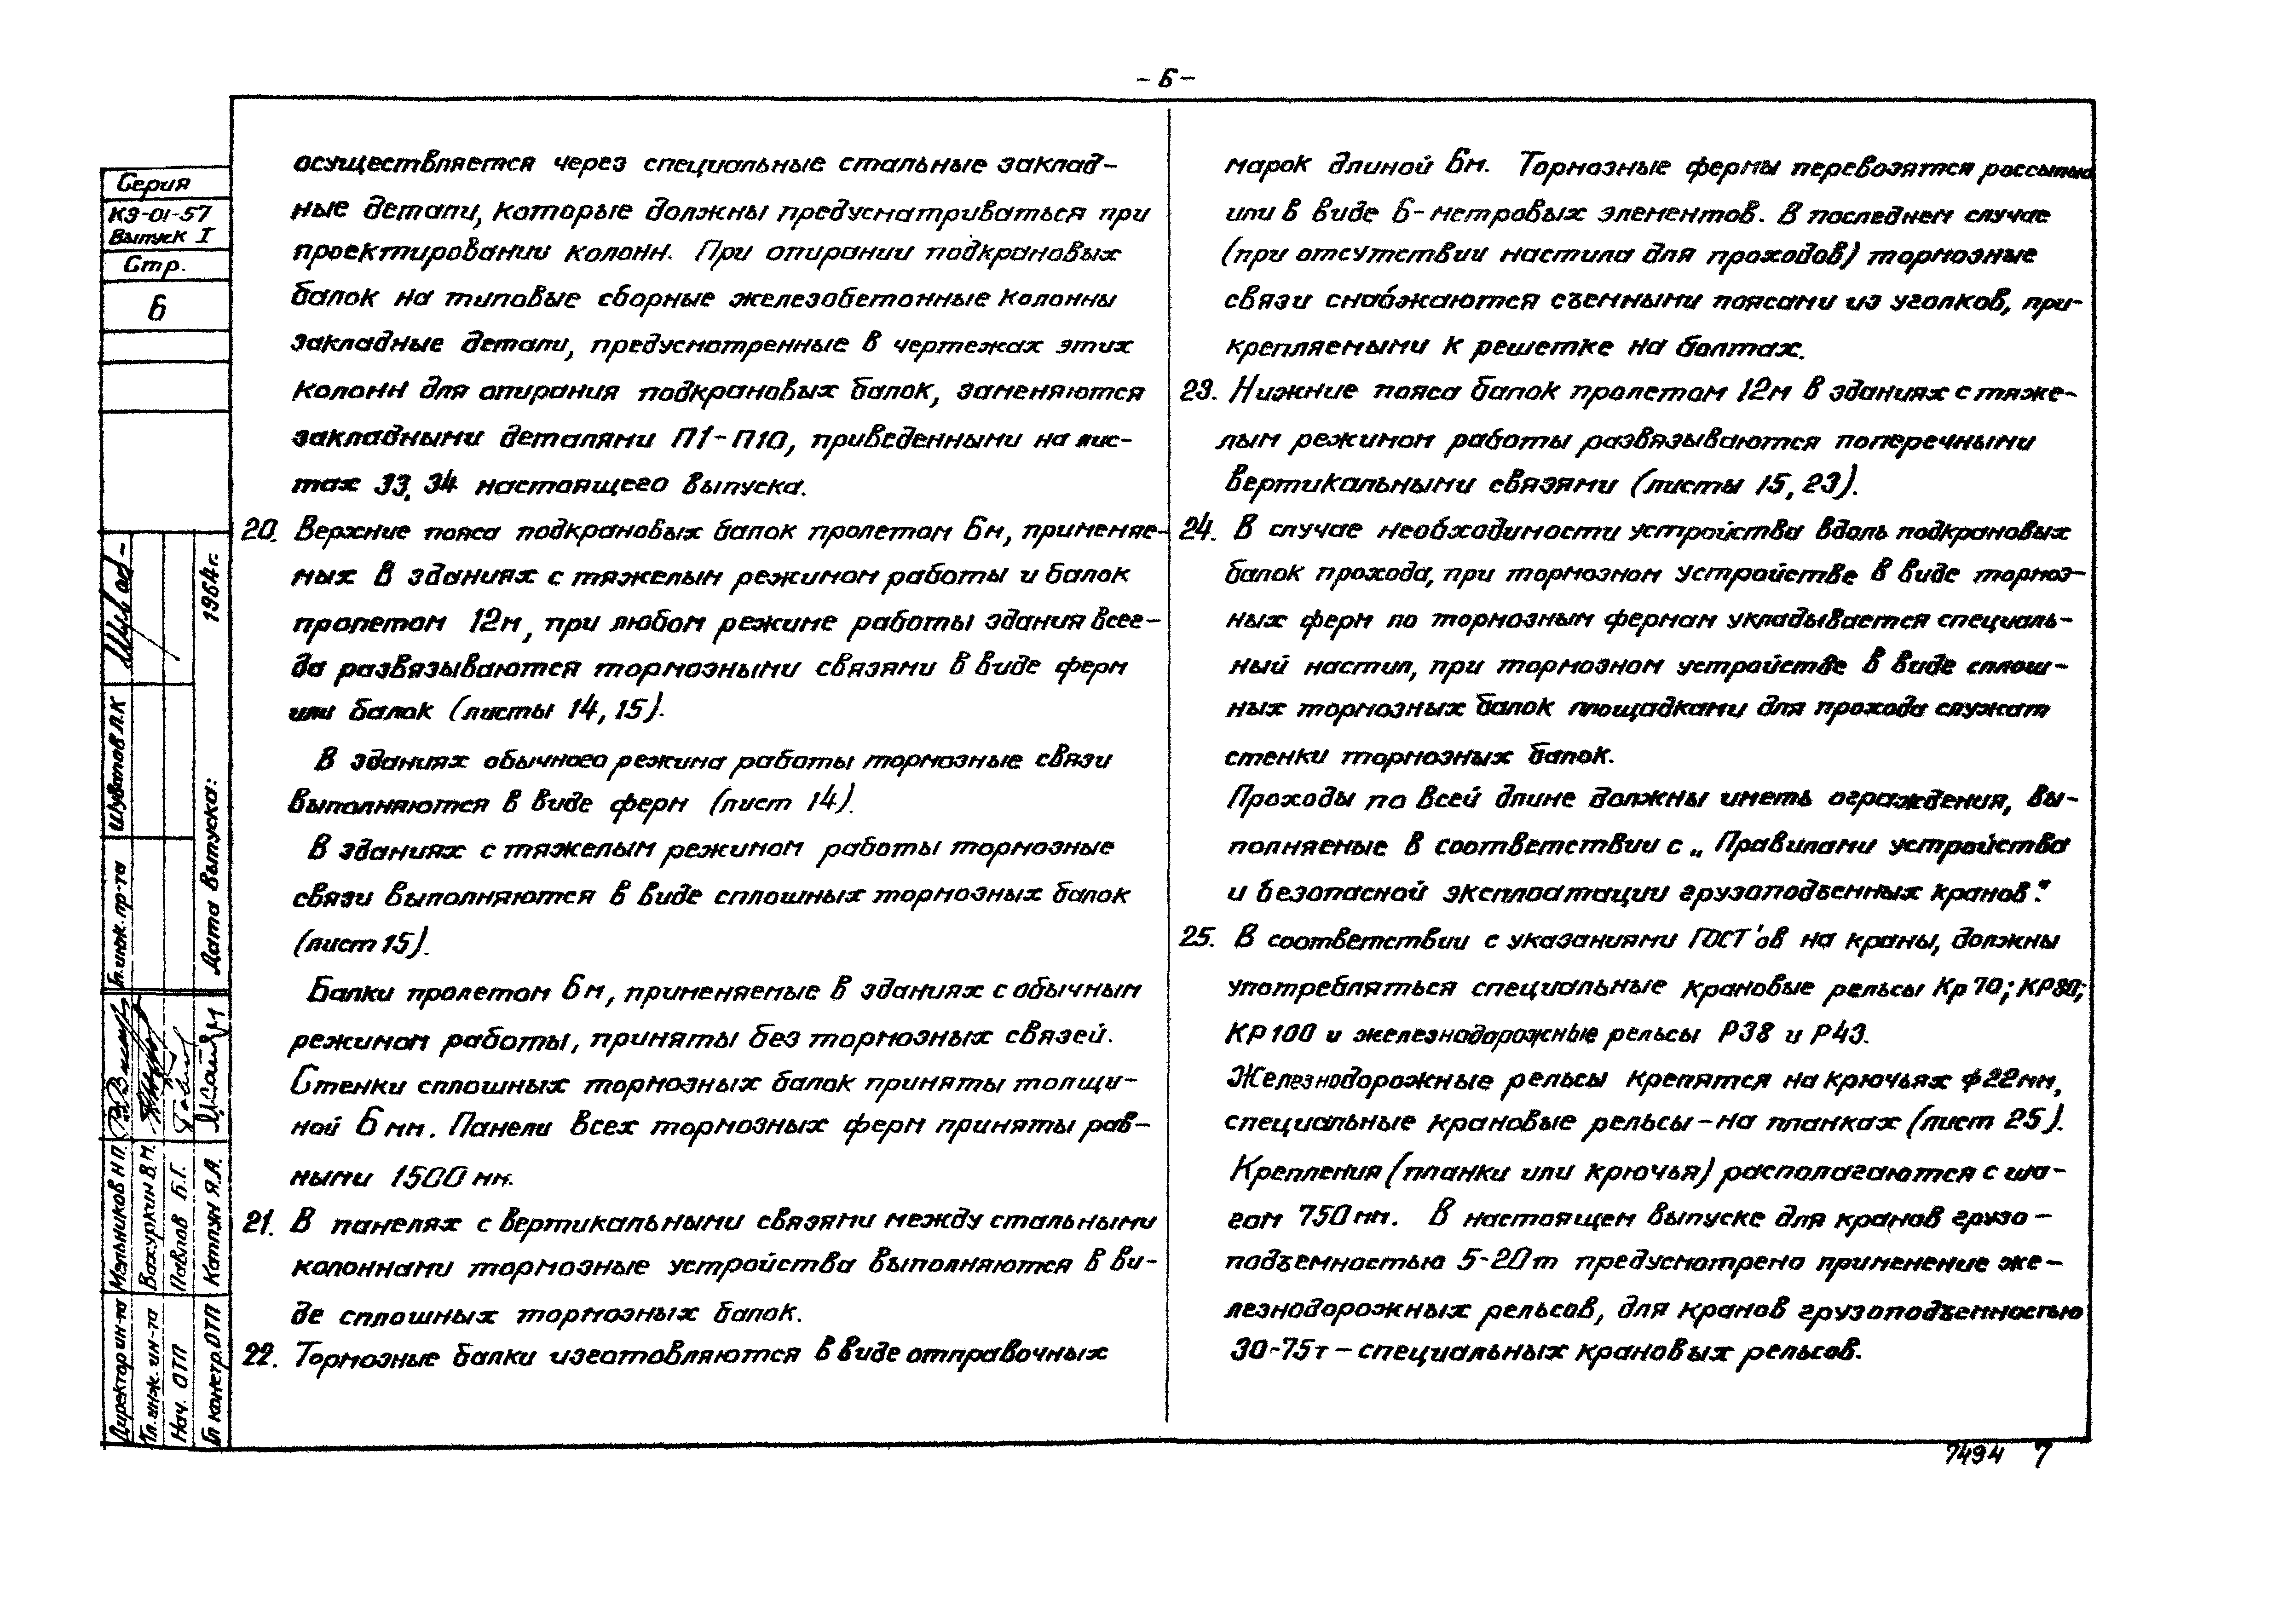 - 6 -
Серия
КЭ-01-57
Выпуск I
Стр.
6
осуществляется через специальные стальные заклад-
ные детали, которые должны предусматриваться при
проектировании колонн. При опирании подкрановых
балок на типовые сборные железобетонные колонны
закладные детали, предусмотренные в чертежах этих
колонн для опирания подкрановых балок, заменяются
закладными деталями П1-П10, приведенными на лис-
тах 33, 34 настоящего выпуска.
20. Верхние пояса подкрановых балок пролетом 6м, применяе-
мых в зданиях с тяжелым режимом работы и балок
пролетом 12м, при любом режиме работы здания всег-
да развязываются тормозными связями в виде ферм
или балок (листы 14, 15).
В зданиях обычного режима работы тормозные связи
выполняются в виде ферм (лист 14).
В зданиях с тяжелым режимом работы тормозные
связи выполняются в виде сплошных тормозных балок
(лист 15).
Балки пролетом 6м, применяемые в зданиях с обычным
режимом работы, приняты без тормозных связей.
Стенки сплошных тормозных балок приняты толщи-
ной 6 мм. Панели всех тормозных ферм приняты рав-
ными 1500 мм.
21. В панелях с вертикальными связями между стальными
колоннами тормозные устройства выполняются в ви-
де сплошных тормозных балок.
22. Тормозные балки изготовляются в виде отправочных
марок длиной 6м. Тормозные фермы перевозятся россыпью
или в виде 6-метровых элементов. В последнем случае
(при отсутствии настила для проходов) тормозные
связи снабжаются съемными поясами из уголков, при-
крепляемыми к решетке на болтах.
23. Нижние пояса балок пролетом 12м в зданиях с тяже-
лым режимом работы развязываются поперечными
вертикальными связями (листы 15, 23).
24. В случае необходимости устройства вдоль подкрановых
балок прохода, при тормозном устройстве в виде тормоз-
ных ферм по тормозным фермам укладывается специаль-
ный настил, при тормозном устройстве в виде сплош-
ных тормозных балок площадками для прохода служат
стенки тормозных балок.
Проходы по всей длине должны иметь ограждения, вы-
полняемые в соответствии с „Правилами устройства
и безопасной эксплоатации грузоподъемных кранов".
25. В соответствии с указаниями ГОСТ'ов на краны, должны
употребляться специальные крановые рельсы Кр 70; КР80;
КР100 и железнодорожные рельсы Р38 и Р43.
Железнодорожные рельсы крепятся на крючьях ф22мм,
специальные крановые рельсы – на планках (лист 25).
Крепления (планки или крючья) располагаются с ша-
гом 750 мм. В настоящем выпуске для кранов грузо-
подъемностью 5-20т предусмотрено применение же-
лезнодорожных рельсов, для кранов грузоподъемностью
30-75т – специальных крановых рельсов.
Директор ин-та Мельников Н.П.
Гл. инж. ин-та Вахуркин В.М.
Нач. ОТП Павлов Б.Г.
Гл. констр. ОТП Каплун Я.А.
Гл. инж. пр-та Шувалов Л.К
Дата выпуска: 1964г.
7494 7